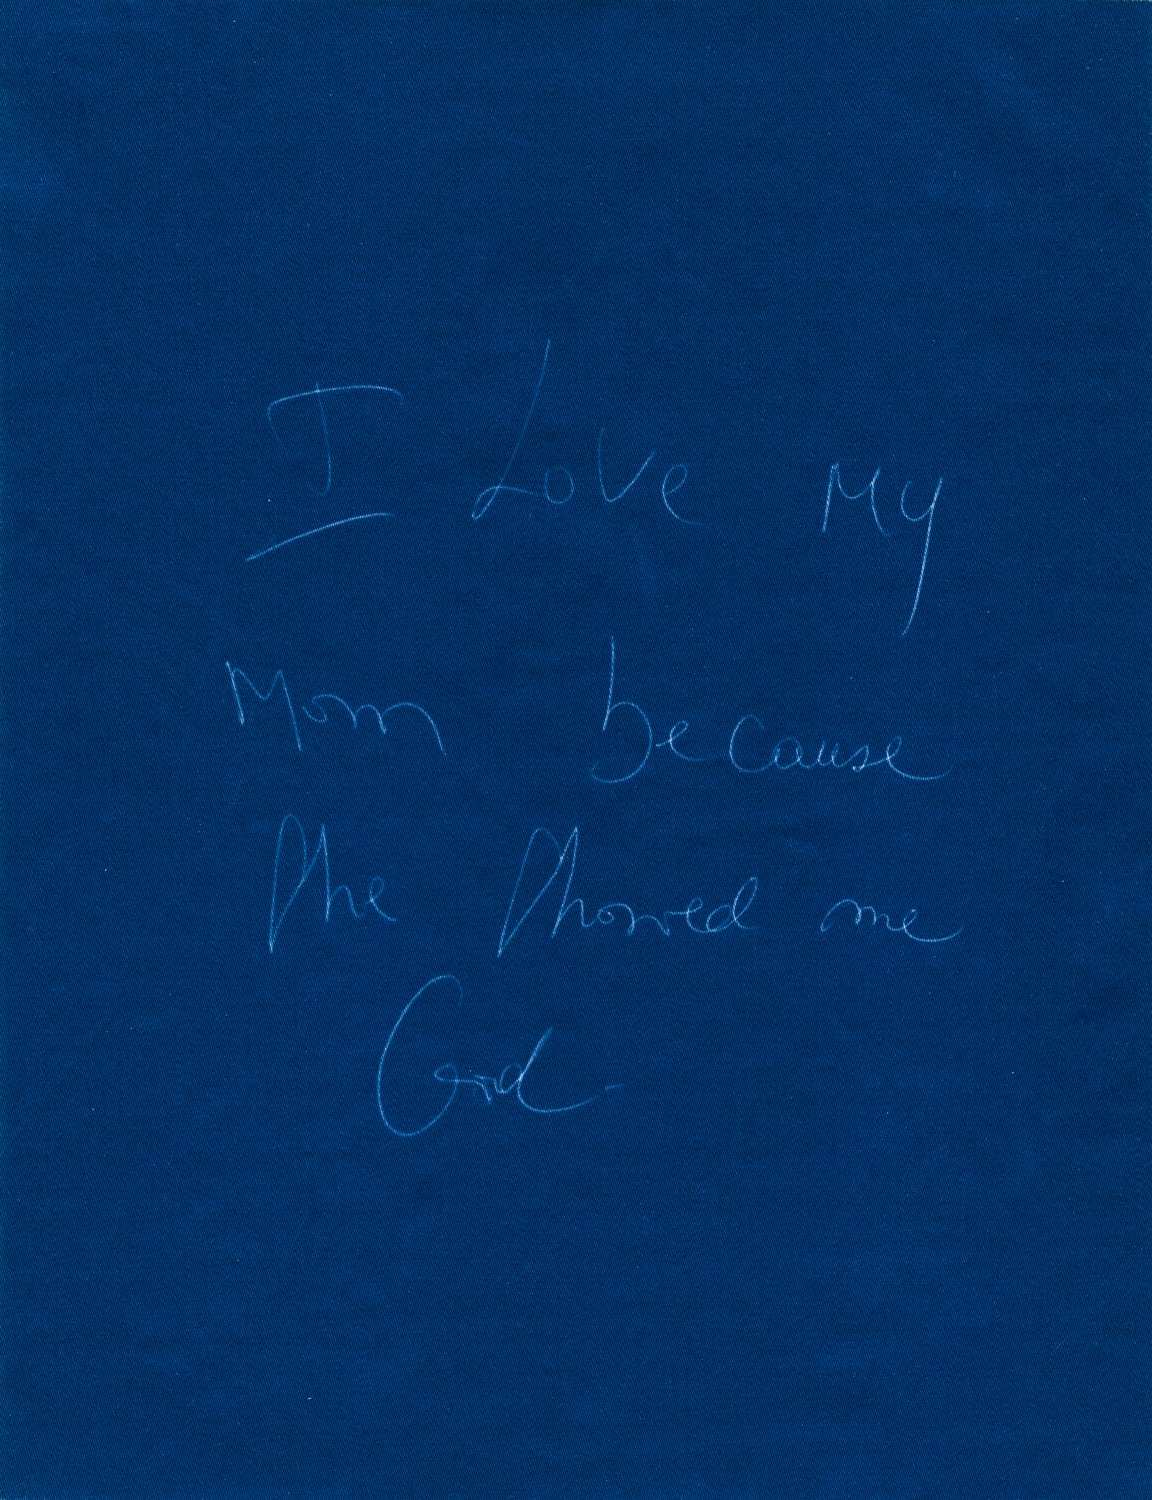 I Love My
Mom because
She Showed me
God.